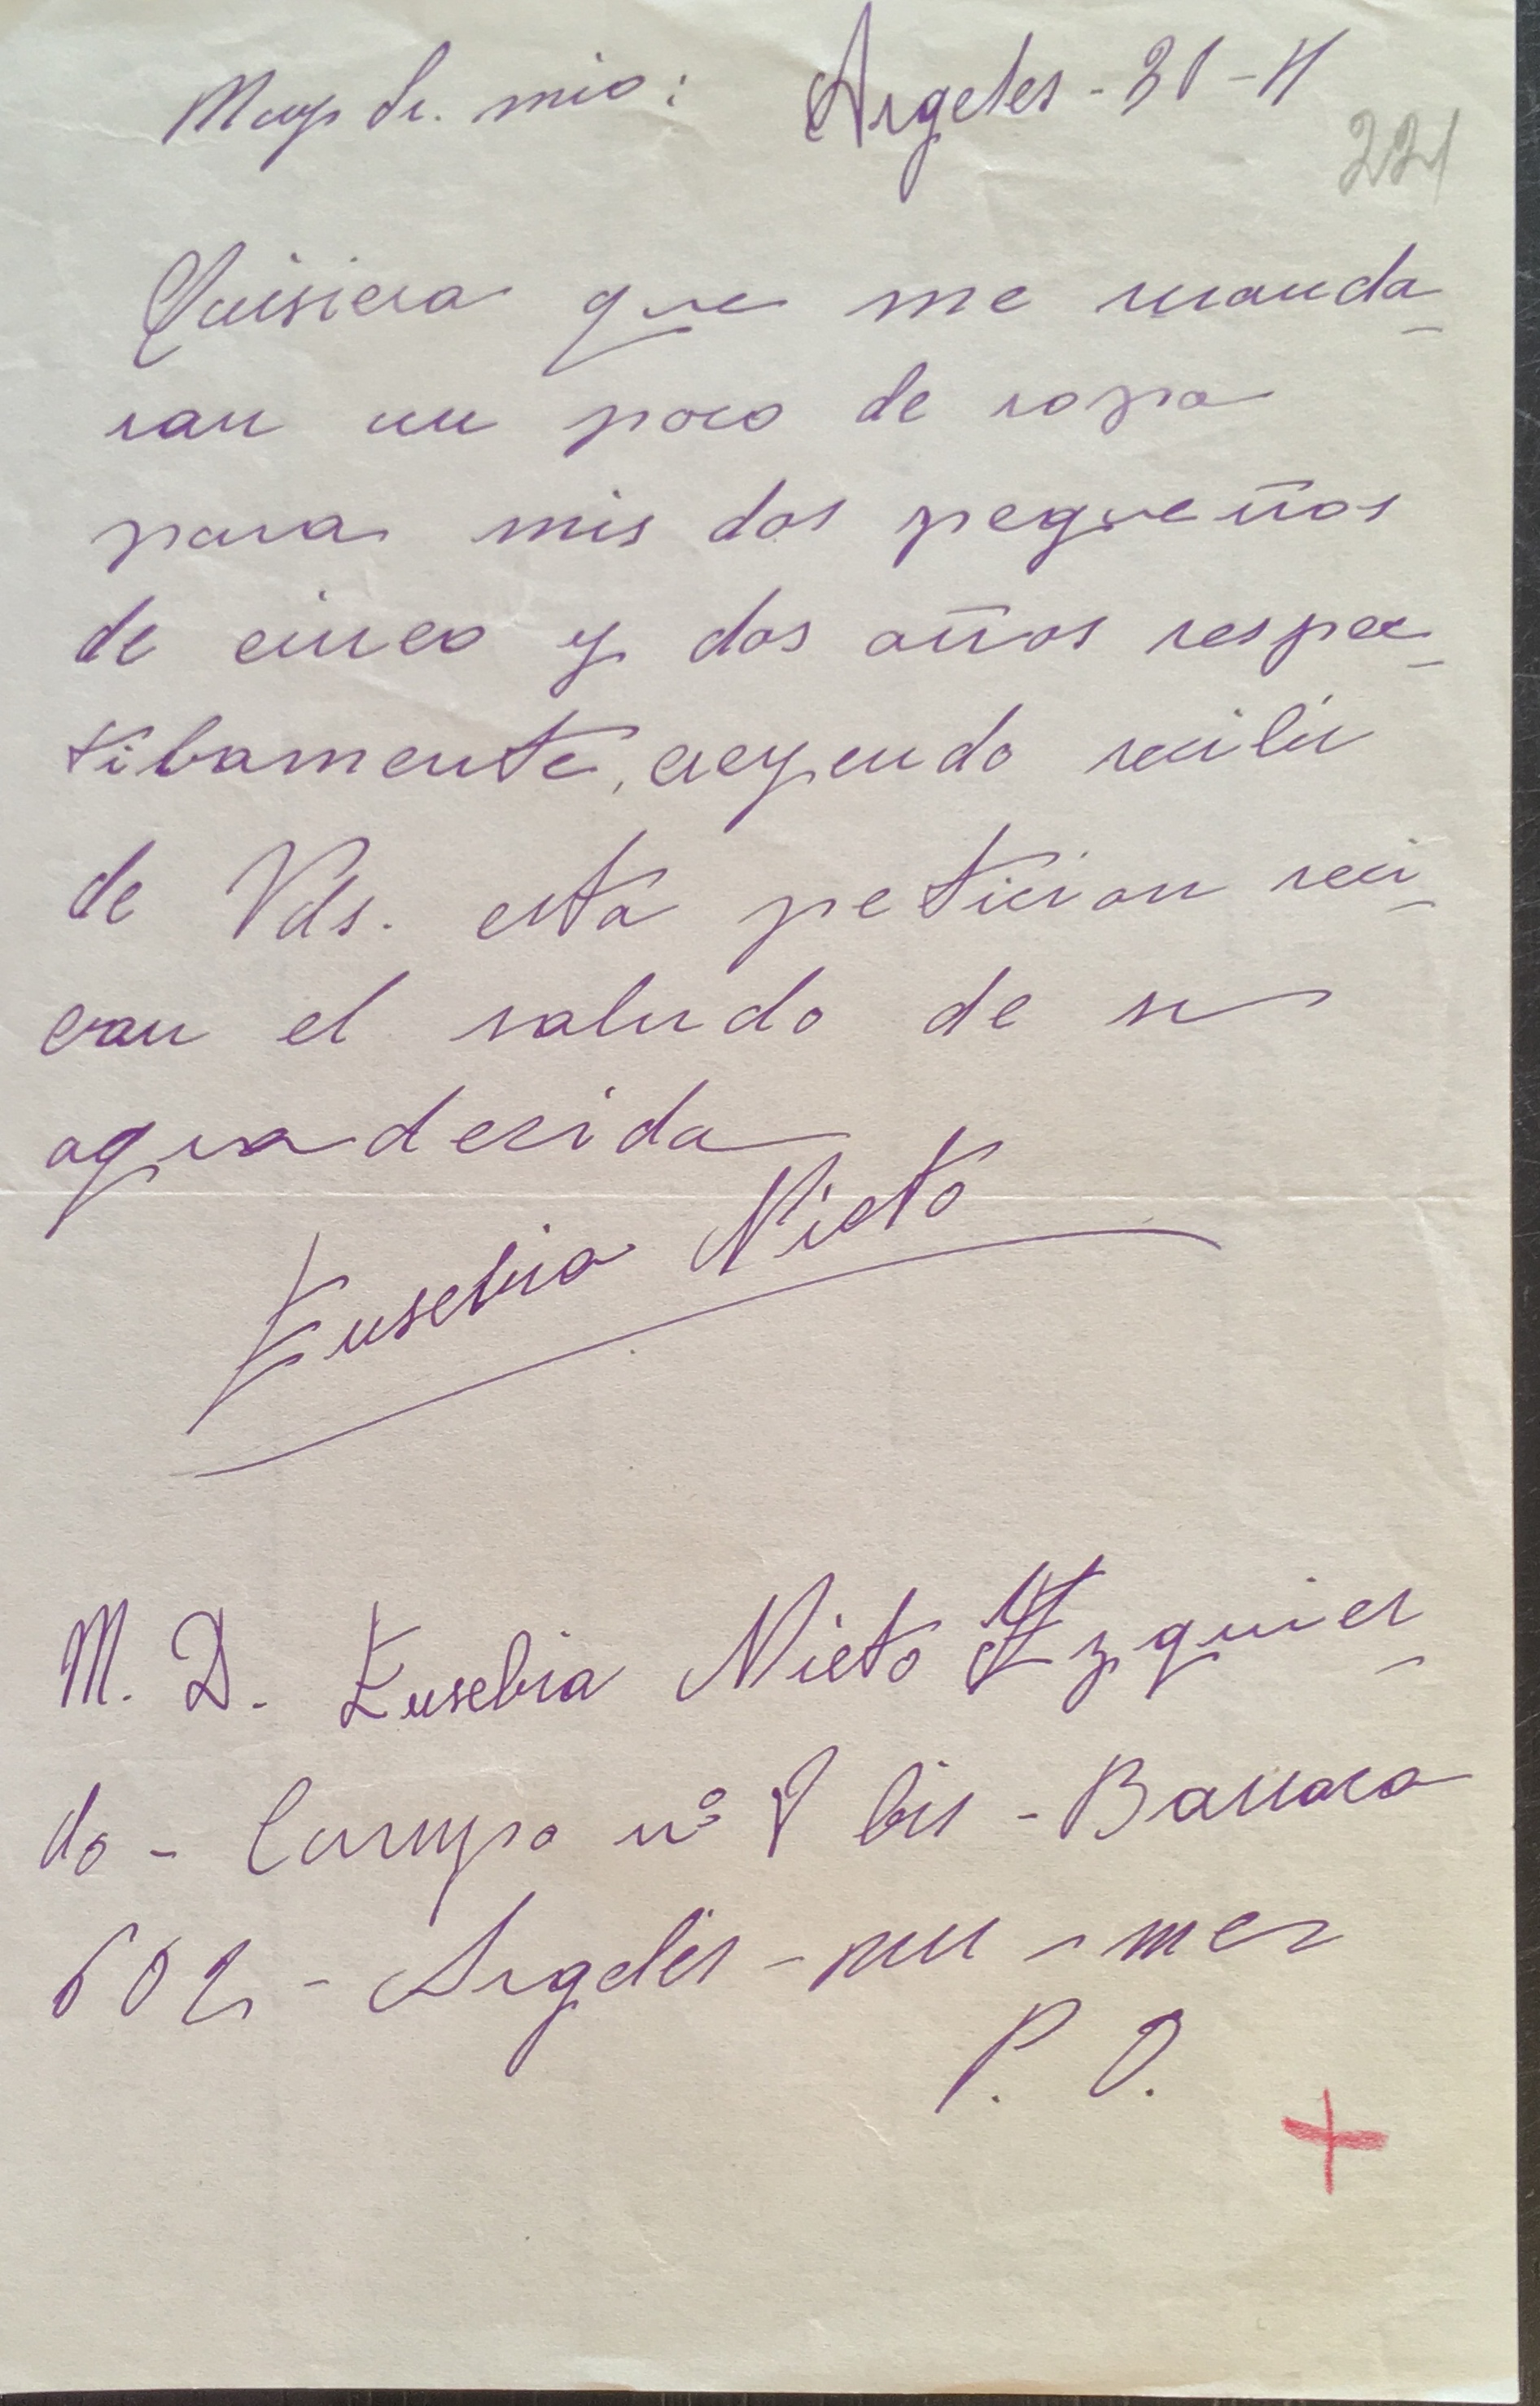 Muy Sr. mio: Argeles - 31 - 11
221
Quisiera que me manda-
ran un poco de ropa
para mis dos pequeños
de cinco y dos años respec-
tibamente, creyendo recibir
de Vds. esta peticion reci-
van el saludo de su
agradecida
Eusebia Nieto
M. D. Eusebia Nieto Yzquier-
do - Campo nº 8 bis - Barraca
602 - Argelés - sur - mer
P. O.